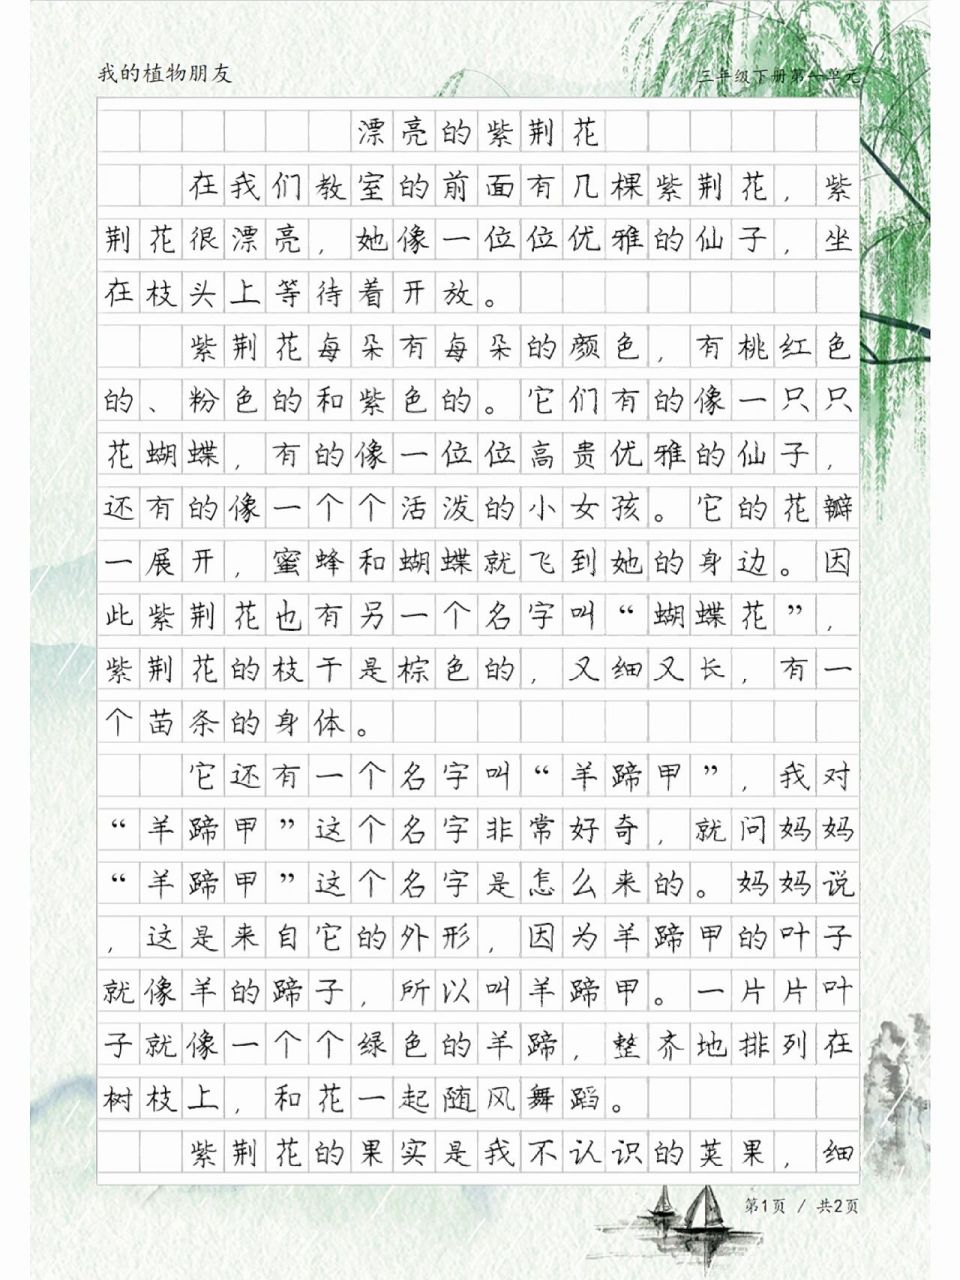 我的植物朋友
三年级下册第一单元
漂亮的紫荆花
在我们教室的前面有几棵紫荆花，紫
荆花很漂亮，她像一位位优雅的仙子，坐
在枝头上等待着开放。
紫荆花每朵有每朵的颜色，有桃红色
的、粉色的和紫色的。它们有的像一只只
花蝴蝶，有的像一位位高贵优雅的仙子，
还有的像一个个活泼的小女孩。它的花瓣
一展开，蜜蜂和蝴蝶就飞到她的身边。因
此紫荆花也有另一个名字叫“蝴蝶花”，
紫荆花的枝干是棕色的，又细又长，有一
个苗条的身体。
它还有一个名字叫“羊蹄甲”，我对
“羊蹄甲”这个名字非常好奇，就问妈妈
“羊蹄甲”这个名字是怎么来的。妈妈说
，这是来自它的外形，因为羊蹄甲的叶子
就像羊的蹄子，所以叫羊蹄甲。一片片叶
子就像一个个绿色的羊蹄，整齐地排列在
树枝上，和花一起随风舞蹈。
紫荆花的果实是我不认识的荚果，细
第1页 / 共2页